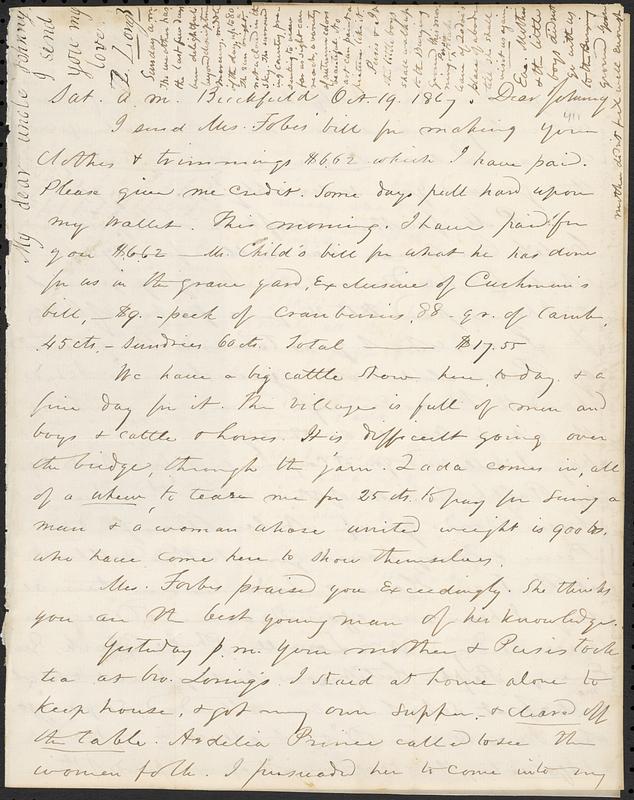 Sat. a.m. Buckfield Oct. 19. 1867. Dear Johnny
I send Mrs. Forbes' bill for making your
clothes & trimmings $6.62 which I have paid.
Please give me credit. Some days pull hard upon
my wallet. This morning. I have paid for
you $6.62 — Mr. Child's bill for what he has done
for us in the grave yard, exclusive of Cushman's
bill, — $9. - peck of Cranberries, 88 - qr. of Lamb,
.45 cts, - sundries 60 cts. Total —— $17.55
We have a big cattle show here to day. & a
fine day for it. The village is full of men and
boys & cattle & horses. It is difficult going over
the bridge, through the jam. Zada comes in, all
of a whew, to tease me for 25 cts. to pay for seeing a
man & a woman whose united weight is 900 lbs.
who have come here to show themselves.
Mrs. Forbes praised you exceedingly. She thinks
you are the best young man of her knowledge.
Yesterday p.m. your mother & Persis took
tea at bro. Loring's. I staid at home alone to
keep house, & got my own supper, & cleared off
the table. Ardelia Prince called to see the
women folk. I persuaded her to come into my
My dear uncle Johnny
I send
you my
love
Sunday a.m.
The weather has
the last two days
been delightful
beyond description
Persis & I &
the little boys
shall walk up
to the burying
ground this
Eve. Mother
& the little
boys did not
go with us
to the burying
ground
mother did not feel well enough